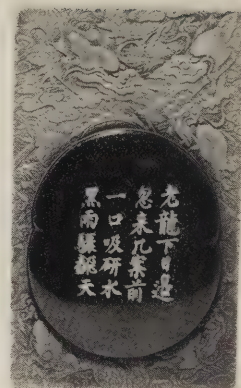 老龍下日邊
忽來几案前
一口吸研水
黑雨驟翻天